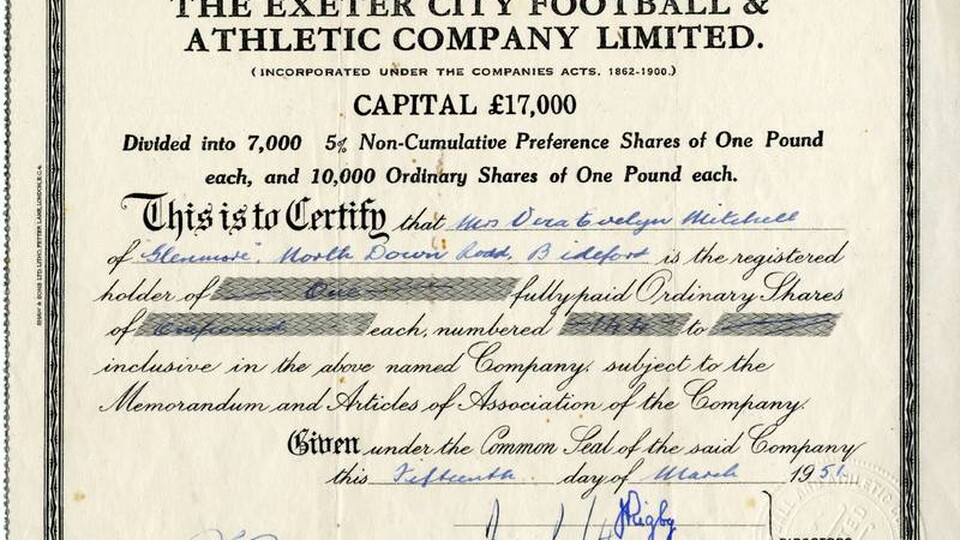 THE EXETER CITY FOOTBALL &
ATHLETIC COMPANY LIMITED.
(INCORPORATED UNDER THE COMPANIES ACTS, 1862-1900.)
CAPITAL £17,000
Divided into 7,000 5% Non-Cumulative Preference Shares of One Pound
each, and 10,000 Ordinary Shares of One Pound each.
This is to Certify that Mrs Vera Evelyn Mitchell
of "Glenmore", North Down Road, Bideford is the registered
holder of One fully paid Ordinary Shares
of One pound each, numbered 144 to
inclusive in the above named Company, subject to the
Memorandum and Articles of Association of the Company.
Given under the Common Seal of the said Company
this Fifteenth day of March 1951
Rigby
DIRECTORS